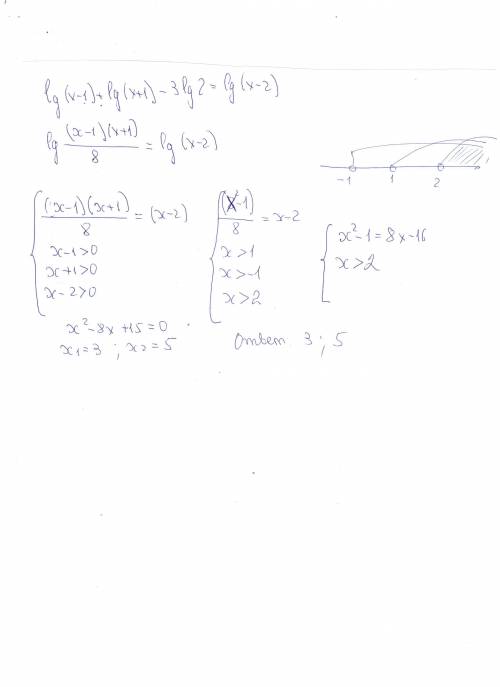 lg(x-1)+lg(x+1)-3lg2=lg(x-2)
lg (x-1)(x+1)/8 = lg(x-2)
-1 1 2
{ (x-1)(x+1)/8 = (x-2)
x-1>0
x+1>0
x-2>0
{ (x²-1)/8 = x-2
x>1
x>-1
x>2
{ x²-1=8x-16
x>2
x²-8x+15=0
x₁=3 ; x₂=5
Ответ 3; 5